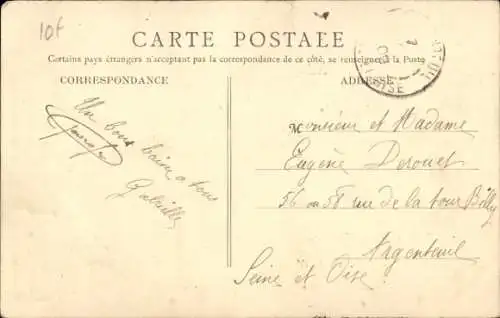 10f
CARTE POSTALE
Certains pays étrangers n'acceptant pas la correspondance de ce côté, se renseigner à la Poste
CORRESPONDANCE
ADRESSE
Un bons baiser a tous
Gabrielle
Monsieur et Madame
Eugène Derouet
56 ou 58 rue de la tour Billy
Argenteuil
Seine et Oise